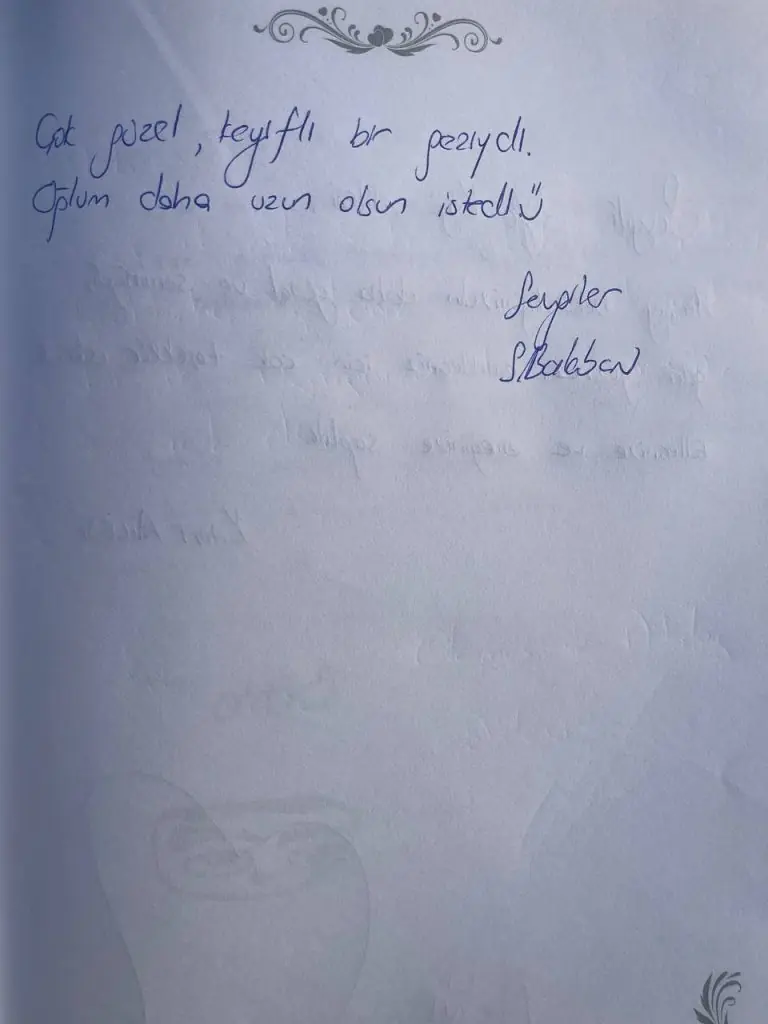 Çok güzel, keyifli bir geziydi.
Oğlum daha uzun olsun istedi ü
Sevgiler
S.Balaban